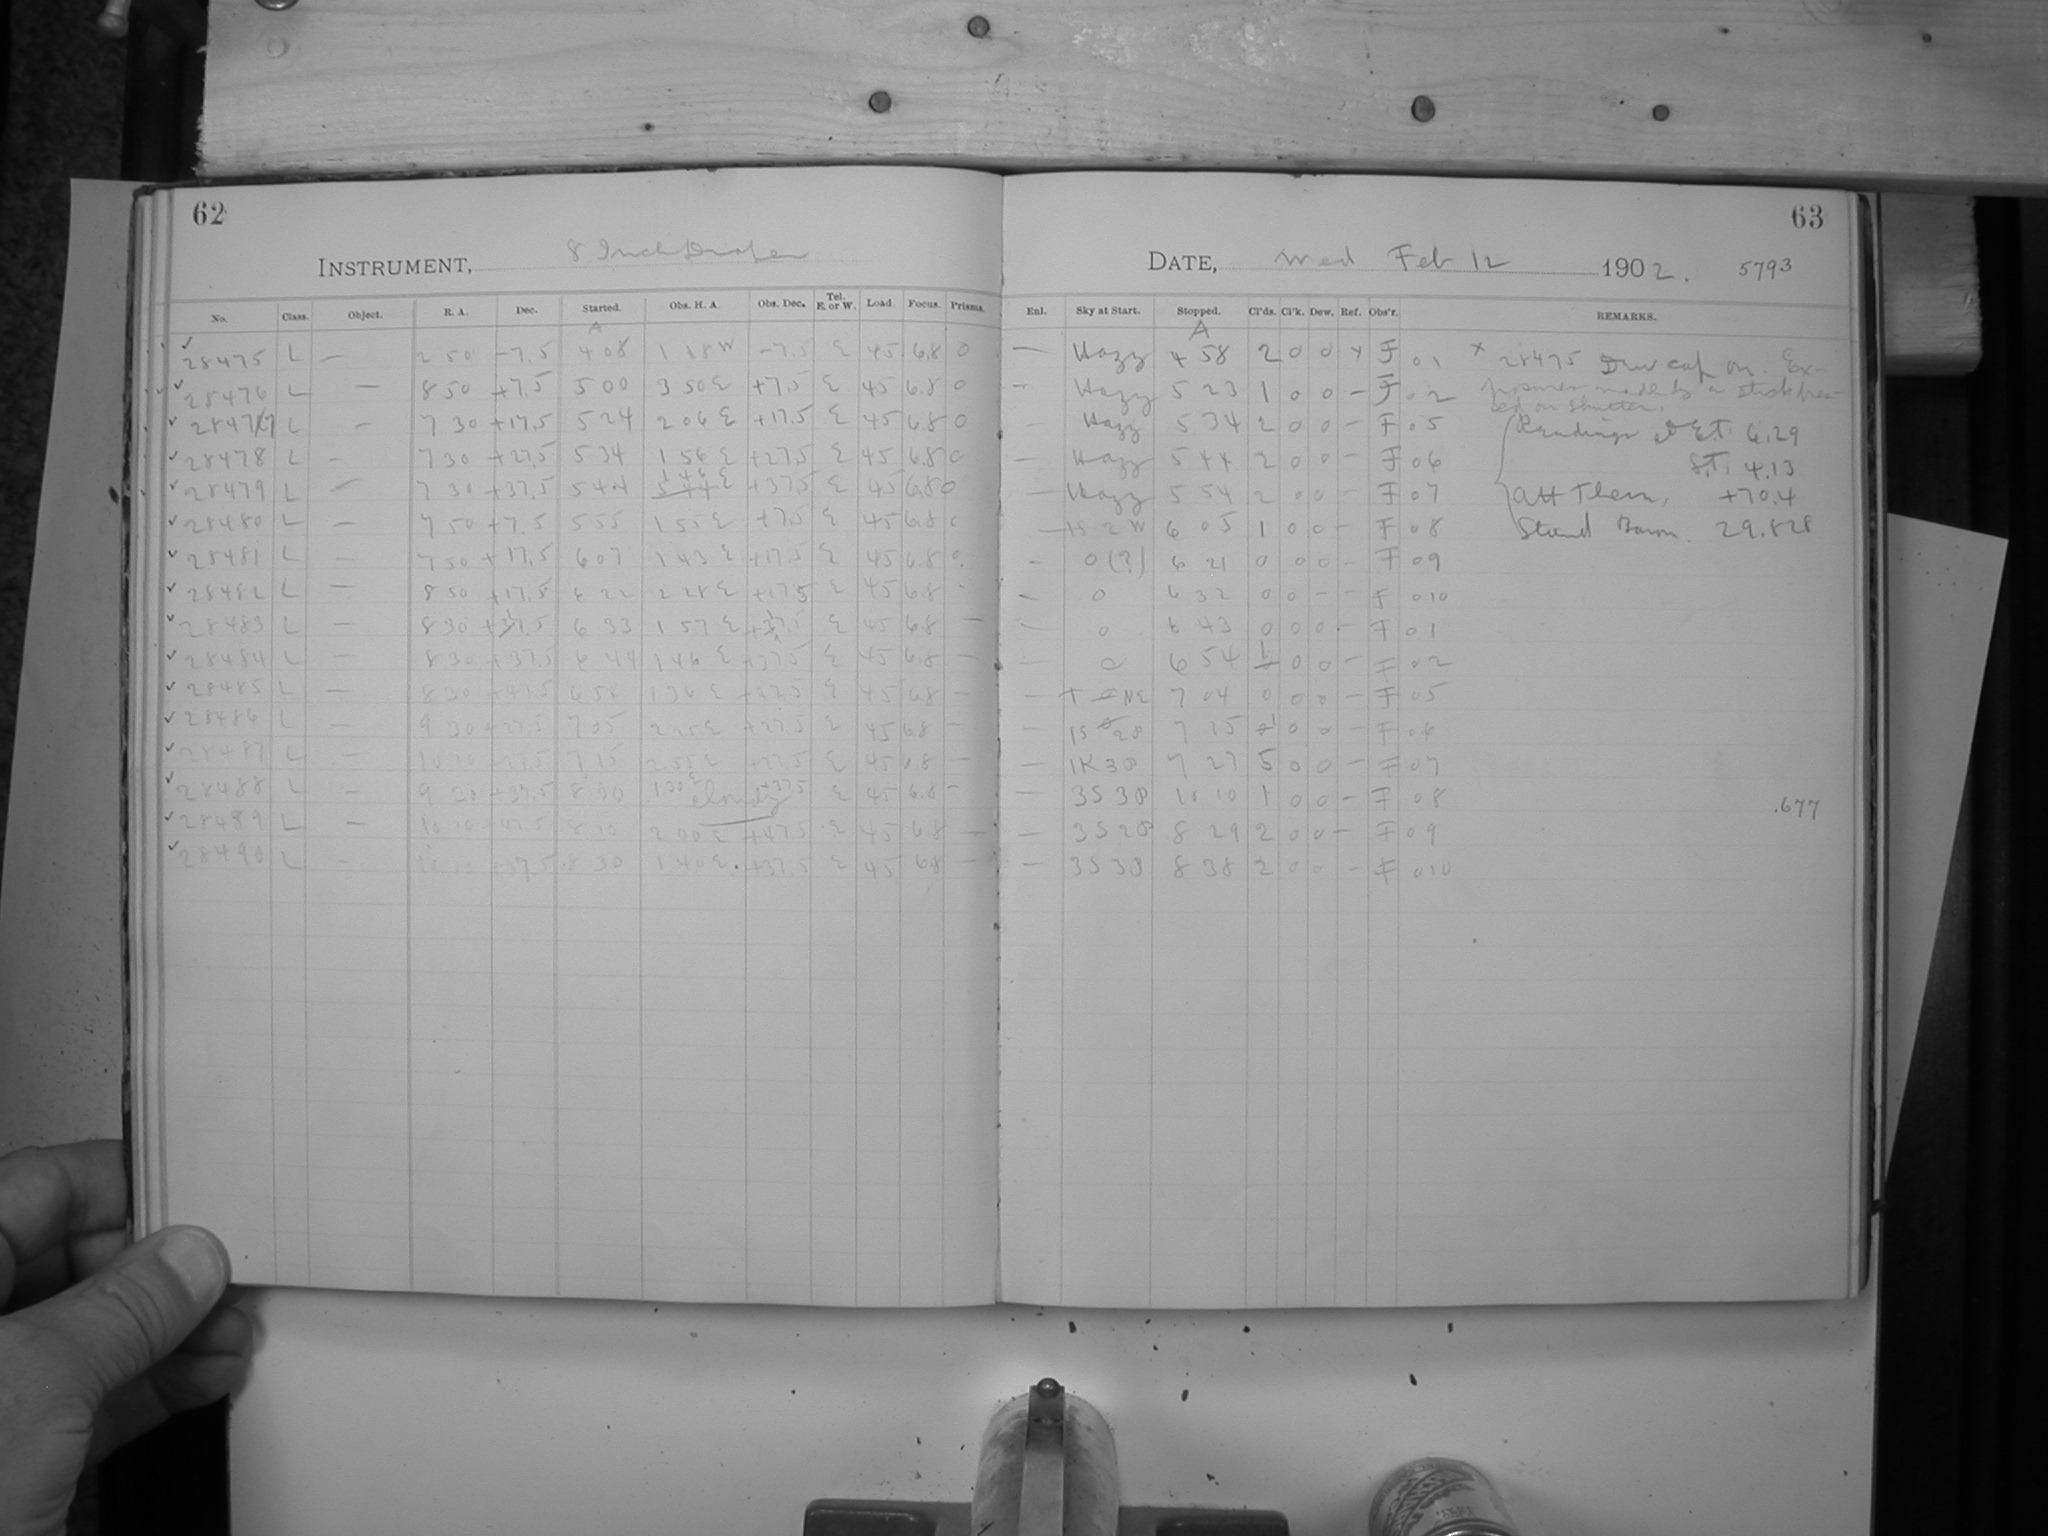 62
INSTRUMENT, 8 Inch Draper
No. Class. Object. R. A. Dec. Started. Obs. H. A. Obs. Dec. Tel. E. or W. Load. Focus. Prisms.
A
28475 L — 2 50 -7.5 4 08 1 18 W -7.5 E 45 6.8 0
28476 L — 8 50 +7.5 5 00 3 50 E +7.5 E 45 6.8 0
28477 L — 7 30 +17.5 5 24 2 06 E +17.5 E 45 6.8 0
28478 L — 7 30 +27.5 5 34 1 56 E +27.5 E 45 6.8 0
28479 L — 7 30 +37.5 5 44 1 46 E +37.5 E 45 6.8 0
28480 L — 7 50 +7.5 5 55 1 55 E +7.5 E 45 6.8 0
28481 L — 7 50 +17.5 6 07 1 43 E +17.5 E 45 6.8 0
28482 L — 8 50 +17.5 6 22 2 28 E +17.5 E 45 6.8 -
28483 L — 8 30 6 33 1 57 E E 45 6.8 —
28484 L — 8 30 +37.5 6 44 1 46 E +37.5 E 45 6.8 —
28485 L — 8 30 +47.5 6 54 1 36 E +47.5 E 45 6.8 —
28486 L — 9 30 +27.5 7 05 2 25 E +27.5 E 45 6.8 —
28487 L — 10 10 +27.5 7 15 2 55 E +27.5 E 45 6.8 —
28488 L — 9 30 +37.5 8 00 1 30 E cloudy +37.5 E 45 6.8 —
28489 L — 10 10 +47.5 8 10 2 00 E +47.5 E 45 6.8 —
28490 L — 10 10 +37.5 8 30 1 40 E +37.5 E 45 6.8 —
63
DATE, Wed Feb 12 1902. 5793
Enl. Sky at Start. Stopped. Cl'ds. Cl'k. Dew. Ref. Obs'r. REMARKS.
A
— Hazy 4 58 2 0 0 x F 01 x 28475 Dew cap on. Ex-
- Hazy 5 23 1 0 0 - F 02 posures made by a stick pres-
sed on shutter.
- Hazy 5 34 2 0 0 - F 05 Readings at E.T. 6.29
— Hazy 5 44 2 0 0 - F 06 S.T. 4.13
— Hazy 5 54 2 0 0 - F 07 Att Therm, +70.4
— 1S 2 W 6 05 1 0 0 - F 08 Stand Barom. 29.828
- 0 (?) 6 21 0 0 0 - F 09
- 0 6 32 0 0 - - F 010
- 0 6 43 0 0 0 - F 01
— 0 6 54 1 0 0 - F 02
— NE 7 04 0 0 0 - F 05
— 1S 2P 7 15 1 0 0 - F 06
— 1K 3P 7 27 5 0 0 - F 07
— 3S 3P 10 10 1 0 0 - F 08 .677
— 3S 2P 8 29 2 0 0 - F 09
— 3S 3P 8 38 2 0 0 - F 010